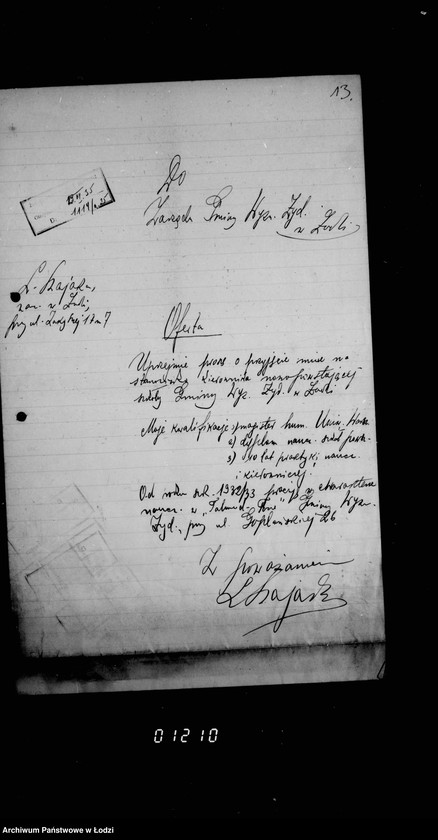 13.
Do
Zarządu Gminy Wyzn. Żyd.
w Łodzi
II 35
1119/35
L. Szajak,
zam. w Łodzi,
przy ul. 17 m 7
Oferta
Uprzejmie proszę o przyjęcie mnie na
stanowisko kierownika nowopowstającej
szkoły Gminy Wyz. Żyd. w Łodzi.
Moje kwalifikacje: 1) magister hum. Uniw. Warsz.
2) dyplom naucz. szkół powsz.
3) 10 lat praktyki naucz.
i kierowniczej.
Od roku szk. 1932/33 pracuję w charakterze
naucz. w „Talmud-Tora” Gminy Wyzn.
Żyd., przy ul. 26
Z poważaniem
L Szajak
01210
Archiwum Państwowe w Łodzi